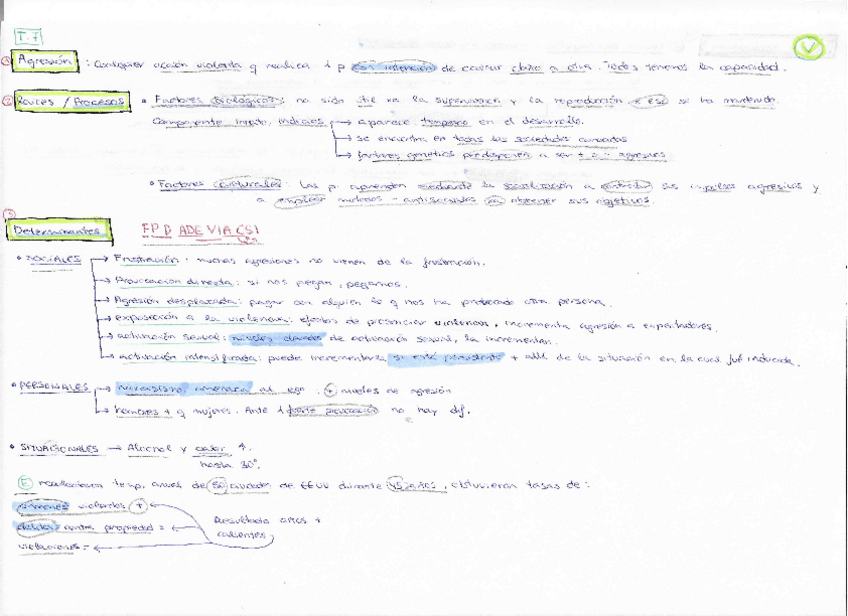 T.7
① Agresión : Cualquier acción violenta q realiza 1 p con intención de causar daño a otra. Todos tenemos la capacidad.
② Raíces / Procesos • Factores biológicos: ha sido útil pa la supervivencia y la reproducción y se ha mantenido.
Componente innato, indicios → aparece temprano en el desarrollo.
→ se encuentra en todas las sociedades
→ factores genéticos predisponen a ser + o - agresivos
• Factores culturales: Las p. aprenden mediante la socialización a controlar sus impulsos agresivos y
a emplear métodos - antisociales pa obtener sus objetivos.
③
Determinantes FPD ADE VIA CSI
• SOCIALES → Frustración: muchas agresiones no vienen de la frustración.
→ Provocación directa: si nos pegan, pegamos.
→ Agresión desplazada: pagar con alguien lo q nos ha provocado otra persona.
→ exposición a la violencia: efectos de presenciar violencia, incrementa agresión a espectadores.
→ activación sexual: niveles elevados de activación sexual, la incrementan.
→ activación intensificada: puede incrementarla si está persistente + allá de la situación en la cual fue inducida.
• PERSONALES → narcisismo, amenaza al ego. + niveles de agresión
→ hombres + q mujeres. Ante 1 fuerte provocación no hay dif.
• SITUACIONALES → Alcohol y calor ↑.
hasta 30°.
E recolectaron temp. anual de 50 ciudades de EEUU durante 45 años, obtuvieron tasas de:
crímenes violentos +
delitos contra propiedad = Resultado años +
calientes
violaciones =